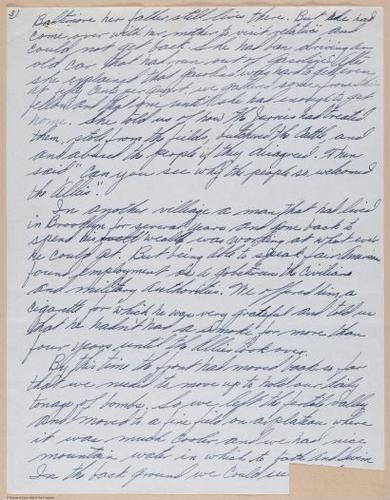 3)
Baltimore her father still live there. But she had
come over with her mother to visit relatives and
could not get back. She had been driving an
old car that had ran out of gasoline. 
she explained that gasoline was hard to get even
at fifty cents per quart, we gathered some from the
fellows and that gone until she had enough to get
home. She told us of how the Jerries had treated
them, stole from the fields, butchered the cattle, and
and abused the people if they disagreed. Then
said "Can you see why the people so welcomed
the Allies".
In another village a man that had lived
in Brooklyn for several years and gone back to
spend his wealth was working at what ever
he could get. But being able to speak American
found employment as a go between the Civilians
and military authorities. We offered him a
cigarette for which he was very grateful and told us
that he hadn't had a smoke for more than
four years until the Allies took over.
By this time the front had moved back so far
that we needed to move up to hold our daily
tonage of bombs. So we left the valley
and moved to a fine field on a plateau where
it was much cooler and we had nice
mountain water in which to bathe and swim
In the back ground we could see